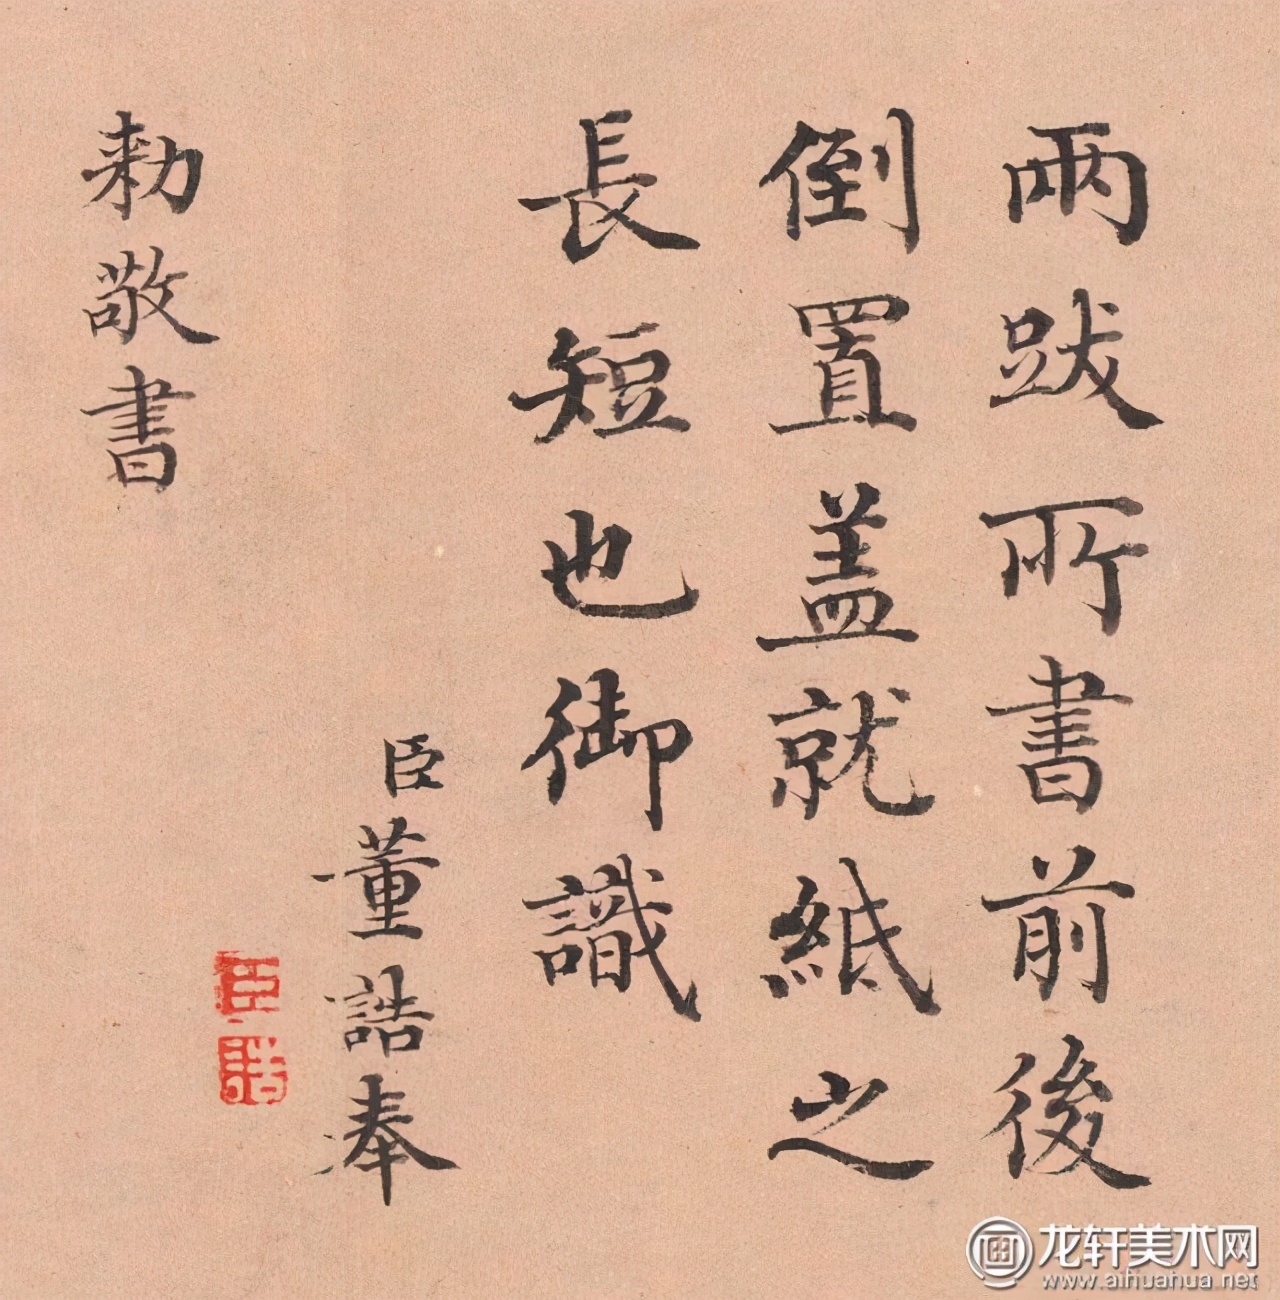 兩跋所書前後
倒置盖就紙之
長短也御識
臣董誥奉
勑敬書
臣
龙轩美术网
www.aihuahua.net